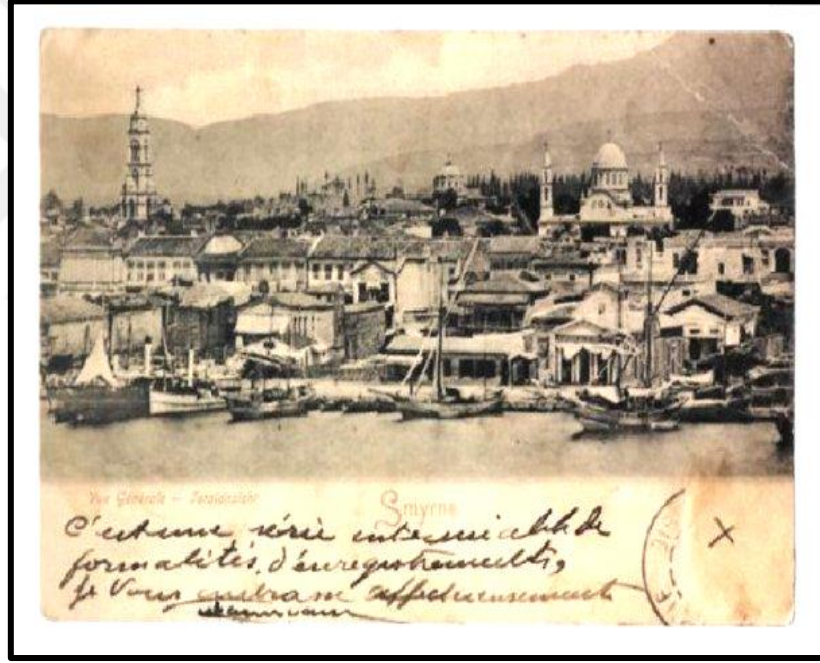 Vue Générale –
Smyrne
C'est une série interminable de
formalités, d'enregistrements,
je vous embrasse affectueusement